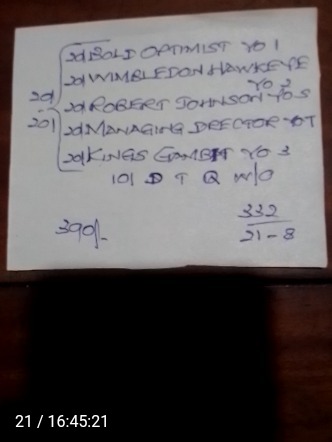 20/ BOLD OPTIMIST YO 1
20/ WIMBLEDON HAWKEYE
YO 2
20/ ROBERT JOHNSON YO 5
20/
201
20/ MANAGING DRECTOR YO 7
20/ KINGS GAMBIT YO 3
101 D T Q W/O
390/-
332
21-8
21 / 16:45:21